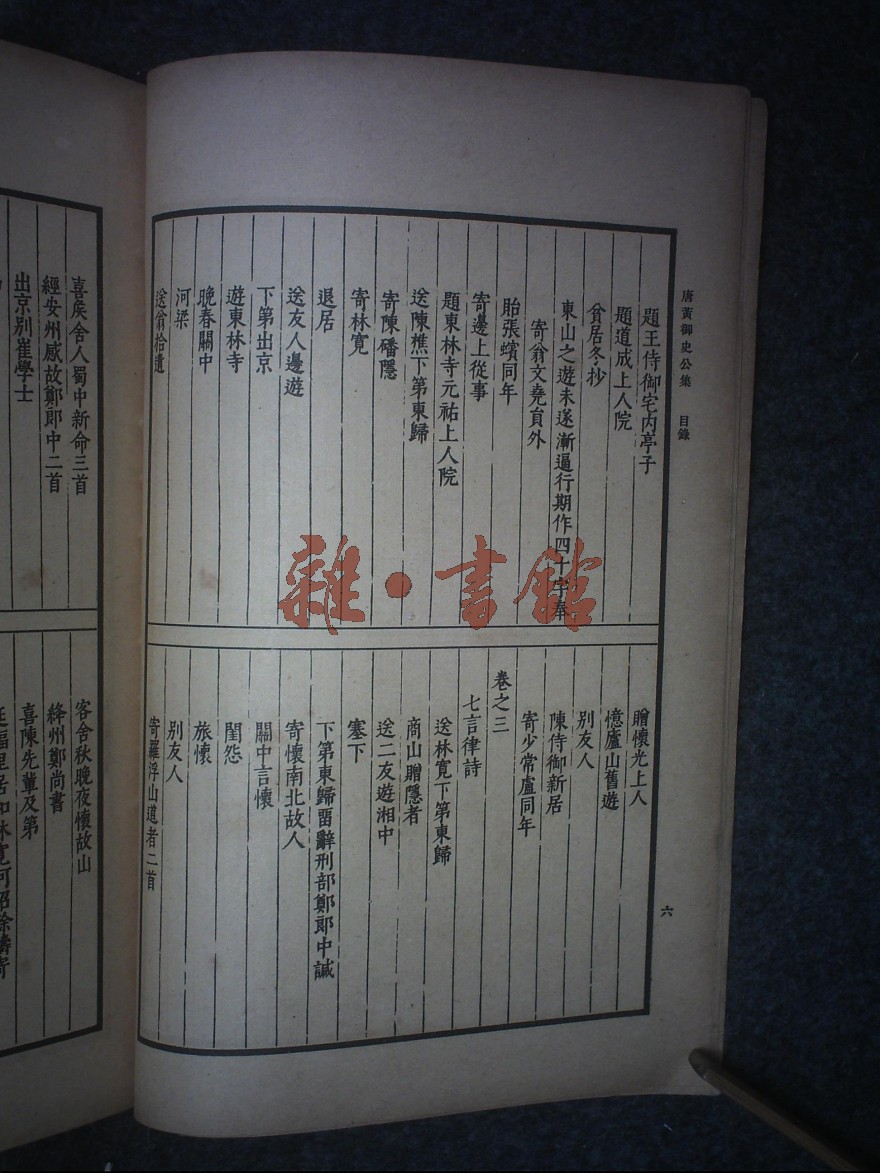 唐黃御史公集 目錄
六
題王侍御宅內亭子
題道成上人院
貧居冬杪
東山之遊未遂漸逼行期作四十字奉
寄翁文堯員外
貽張蠙同年
寄邊上從事
題東林寺元祐上人院
送陳樵下第東歸
寄陳磻隱
寄林寬
退居
送友人邊遊
下第出京
遊東林寺
晚春關中
河梁
送翁拾遺
贈懷光上人
憶廬山舊遊
別友人
陳侍御新居
寄少常盧同年
卷之三
七言律詩
送林寬下第東歸
商山贈隱者
送二友遊湘中
塞下
下第東歸畱辭刑部鄭郎中諴
寄懷南北故人
關中言懷
閨怨
旅懷
別友人
寄羅浮山道者二首
喜矦舍人蜀中新命三首
經安州感故鄭郎中二首
出京別崔學士
客舍秋晚夜懷故山
絳州鄭尚書
喜陳先輩及第
雜·書館